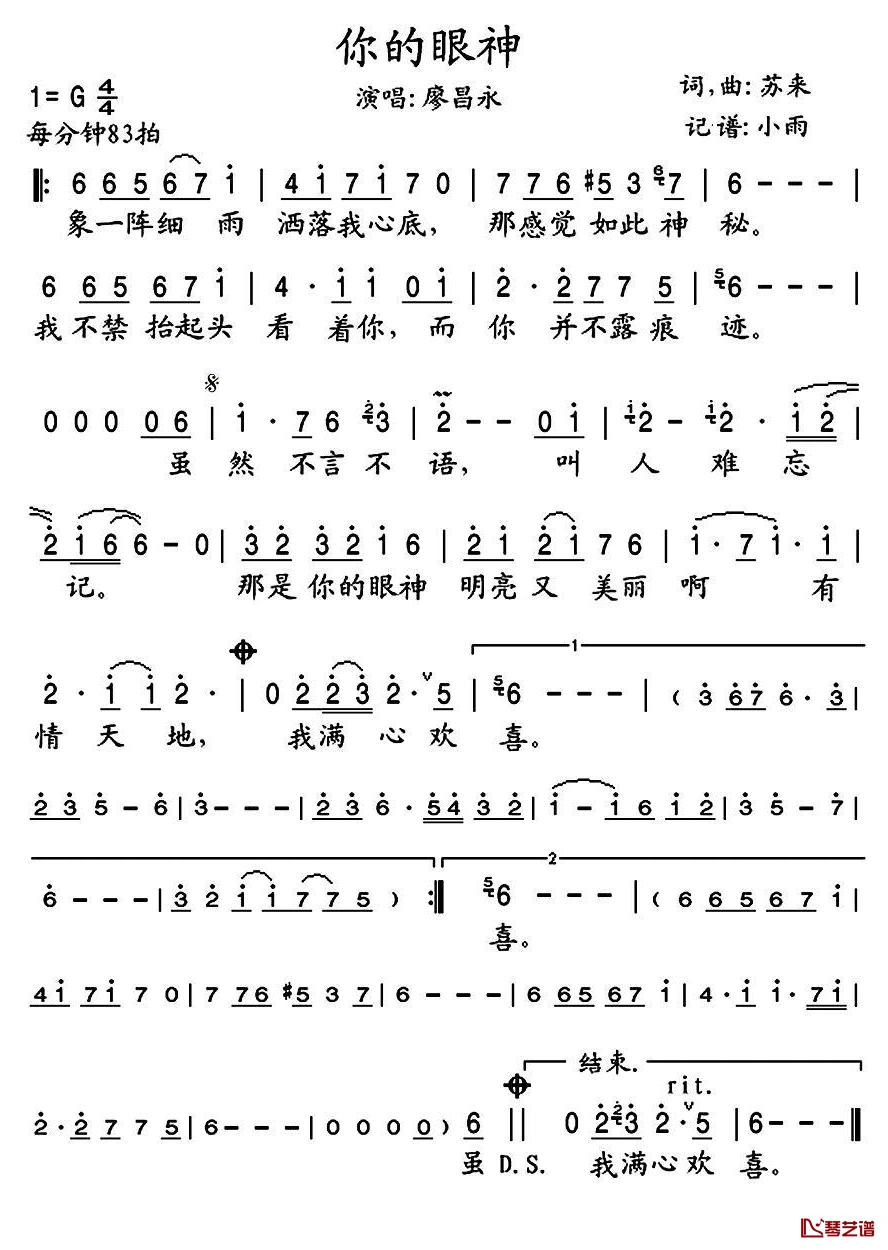 你的眼神
1= G 4/4
演唱: 廖昌永
词,曲: 苏来
每分钟83拍
记谱: 小雨
6 6 5 6 7 i | 4 i 7 i 7 0 | 7 7 6 #5 3 6 7 | 6 - - - |
象一阵细 雨 洒落我心底, 那感觉 如此神 秘。
6 6 5 6 7 i | 4 · i i 0 i | 2 · 2 7 7 5 | 5 6 - - - |
我 不禁 抬起头 看 着你, 而 你 并不露痕 迹。
0 0 0 0 6 | i · 7 6 2 3 | 2 - - 0 i | i 2 - i 2 · i 2 |
虽 然 不言不 语, 叫 人 难 忘
2 i 6 6 - 0 | 3 2 3 2 i 6 | 2 i 2 i 7 6 | i · 7 i · i |
记。 那是你的眼神 明亮又 美丽 啊 有
1
2 · i i 2 · | 0 2 2 3 2 · ∨ 5 | 5 6 - - - | ( 3 6 7 6 · 3 |
情 天 地, 我满 心欢 喜。
2 3 5 - 6 | 3 - - - | 2 3 6 · 5 4 3 2 | i - i 6 i 2 | 3 5 - 7 |
2
6 - - - | 3 2 i i 7 7 5 ) :‖ 5 6 - - - | ( 6 6 5 6 7 i |
喜。
4 i 7 i 7 0 | 7 7 6 #5 3 7 | 6 - - - | 6 6 5 6 7 i | 4 · i i · 7 i |
结束.
rit.
2 · 2 7 7 5 | 6 - - - | 0 0 0 0 ) 6 || 0 2 2 3 2 · ∨ 5 | 6 - - - ‖
虽 D.S. 我满心欢 喜。
琴艺谱